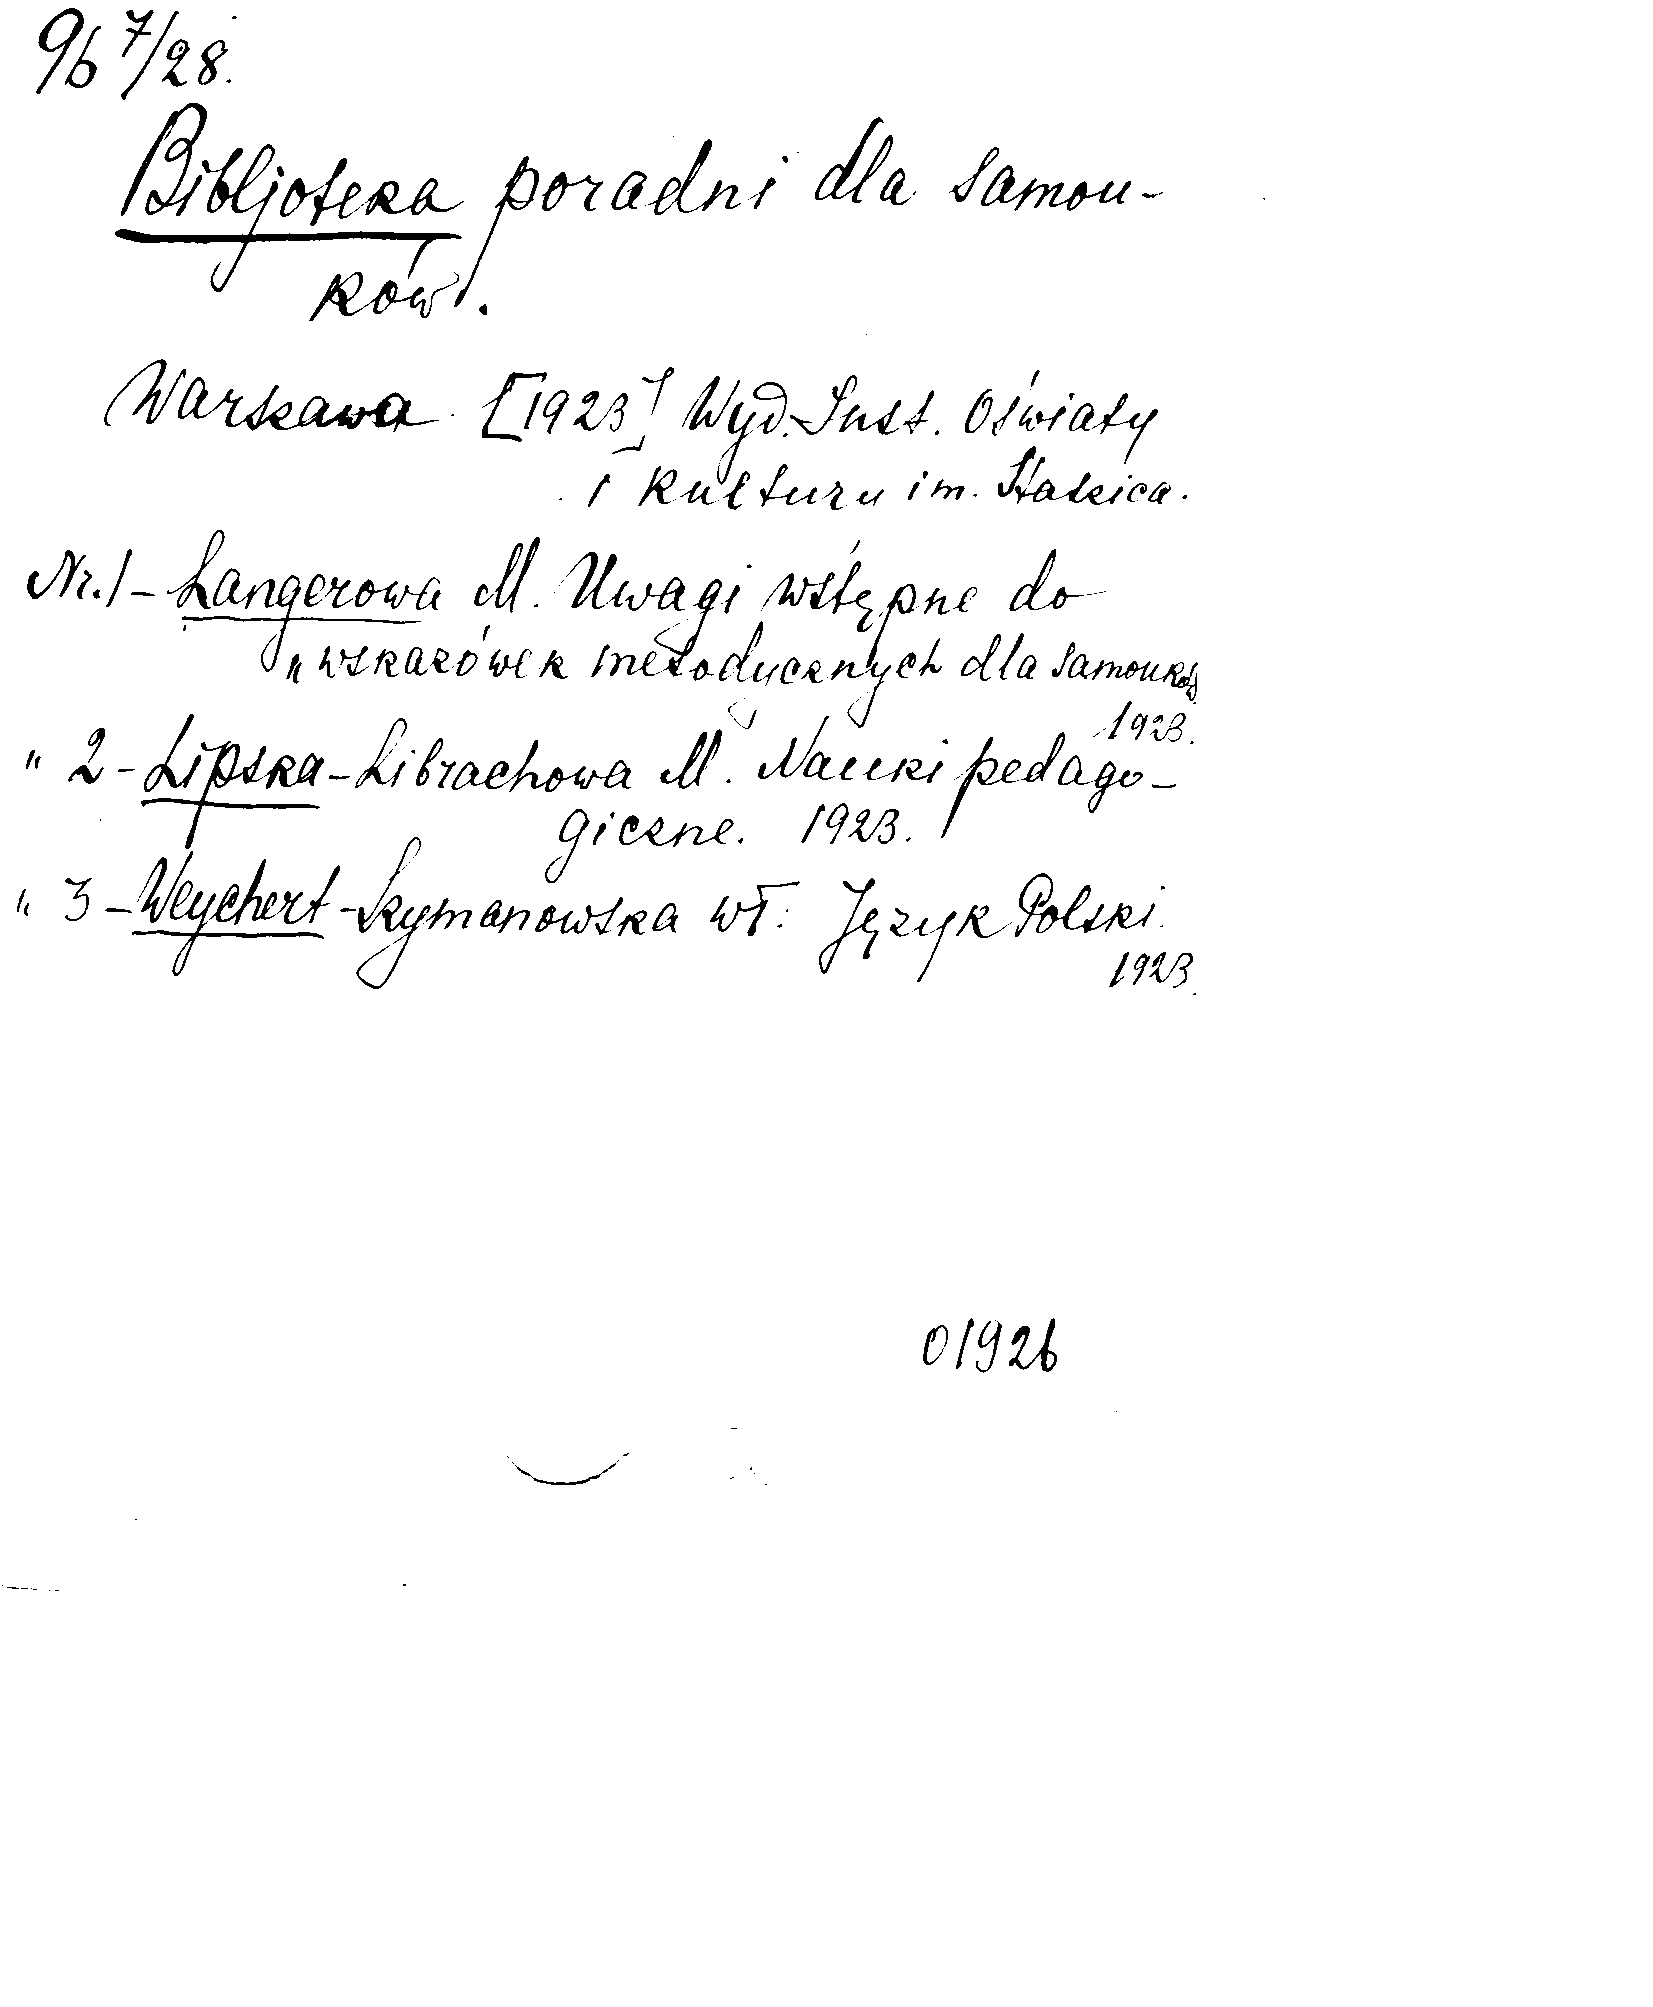 96 7/28.
Bibljoteka poradni dla samou-
ków.
Warszawa [1923] Wyd. Inst. Oświaty
i Kultury im. Staszica.
Nr. 1 - Langerowa M. Uwagi wstępne do
„wskazówek metodycznych dla samouków
1923.
" 2 - Lipska-Librachowa M. Nauki pedago-
giczne. 1923.
" 3 - Weychert-Szymanowska Wł. Język Polski.
1923.
01926